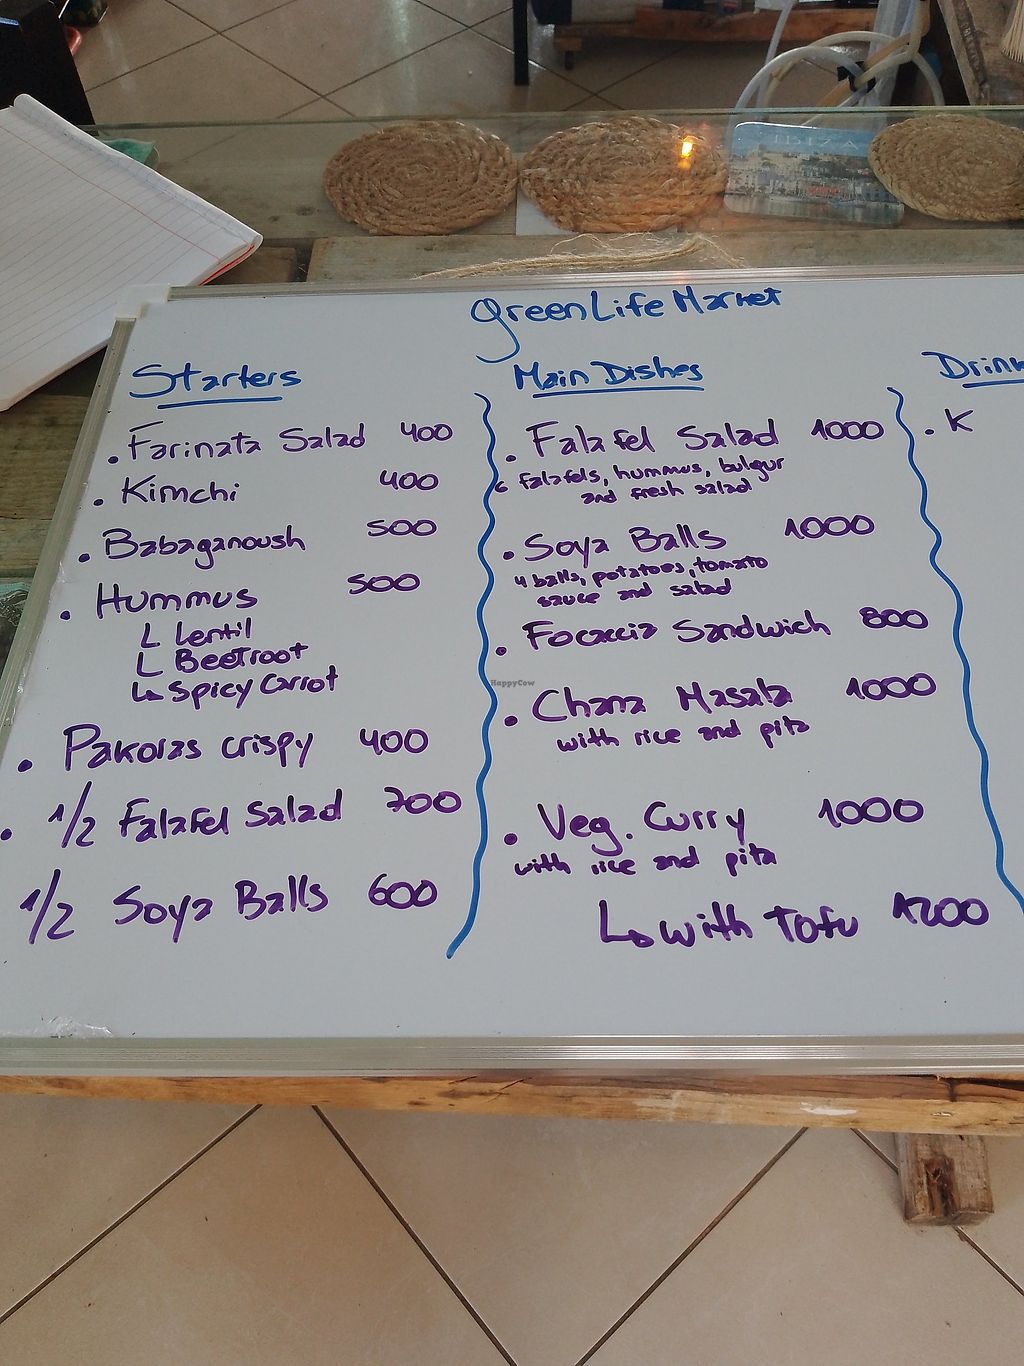 IBIZA
Green Life Market
Starters
. Farinata Salad 400
. Kimchi 400
. Babaganoush 500
. Hummus 500
L Lentil
L Beetroot
L Spicy Carrot
. Pakoras crispy 400
. 1/2 Falafel Salad 700
1/2 Soya Balls 600
Main Dishes
. Falafel Salad 1000
6 falafels, hummus, bulgur
and fresh salad
. Soya Balls 1000
4 balls, potatoes, tomato
sauce and salad
. Focaccia Sandwich 800
HappyCow
. Chana Masala 1000
with rice and pita
. Veg. Curry 1000
with rice and pita
L with Tofu 1200
Drink
. K